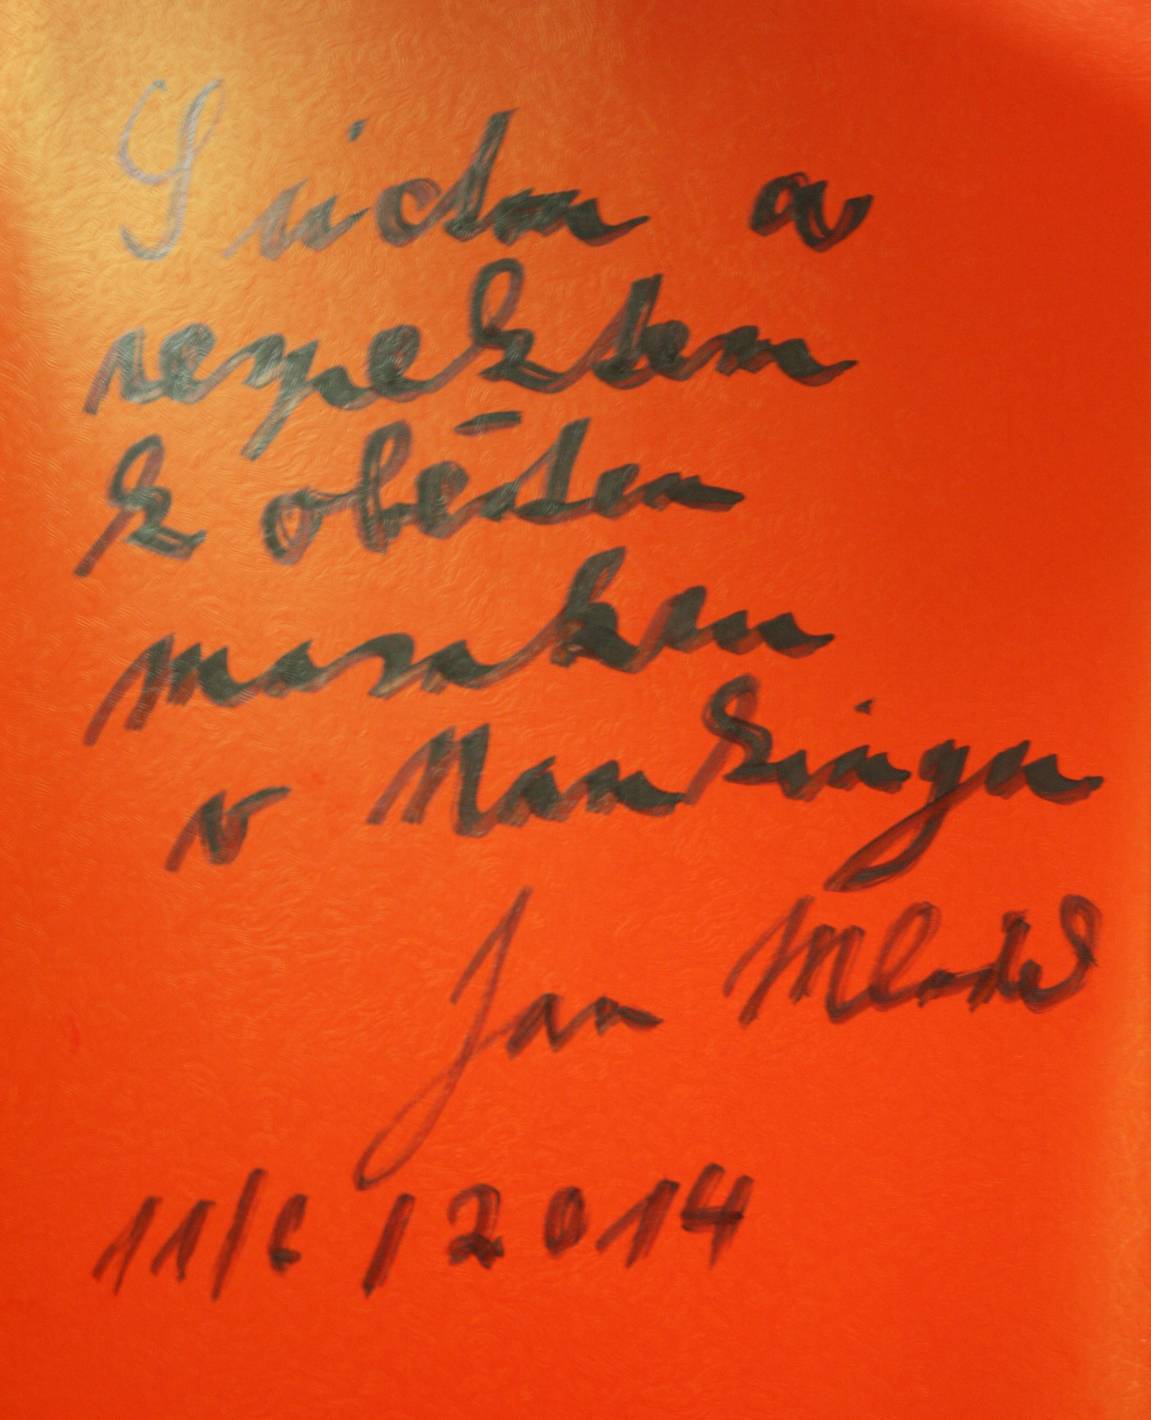 S úctou a
respektem
k obětem
masakru
v Nankingu
Jan Mládek
11/6/2014